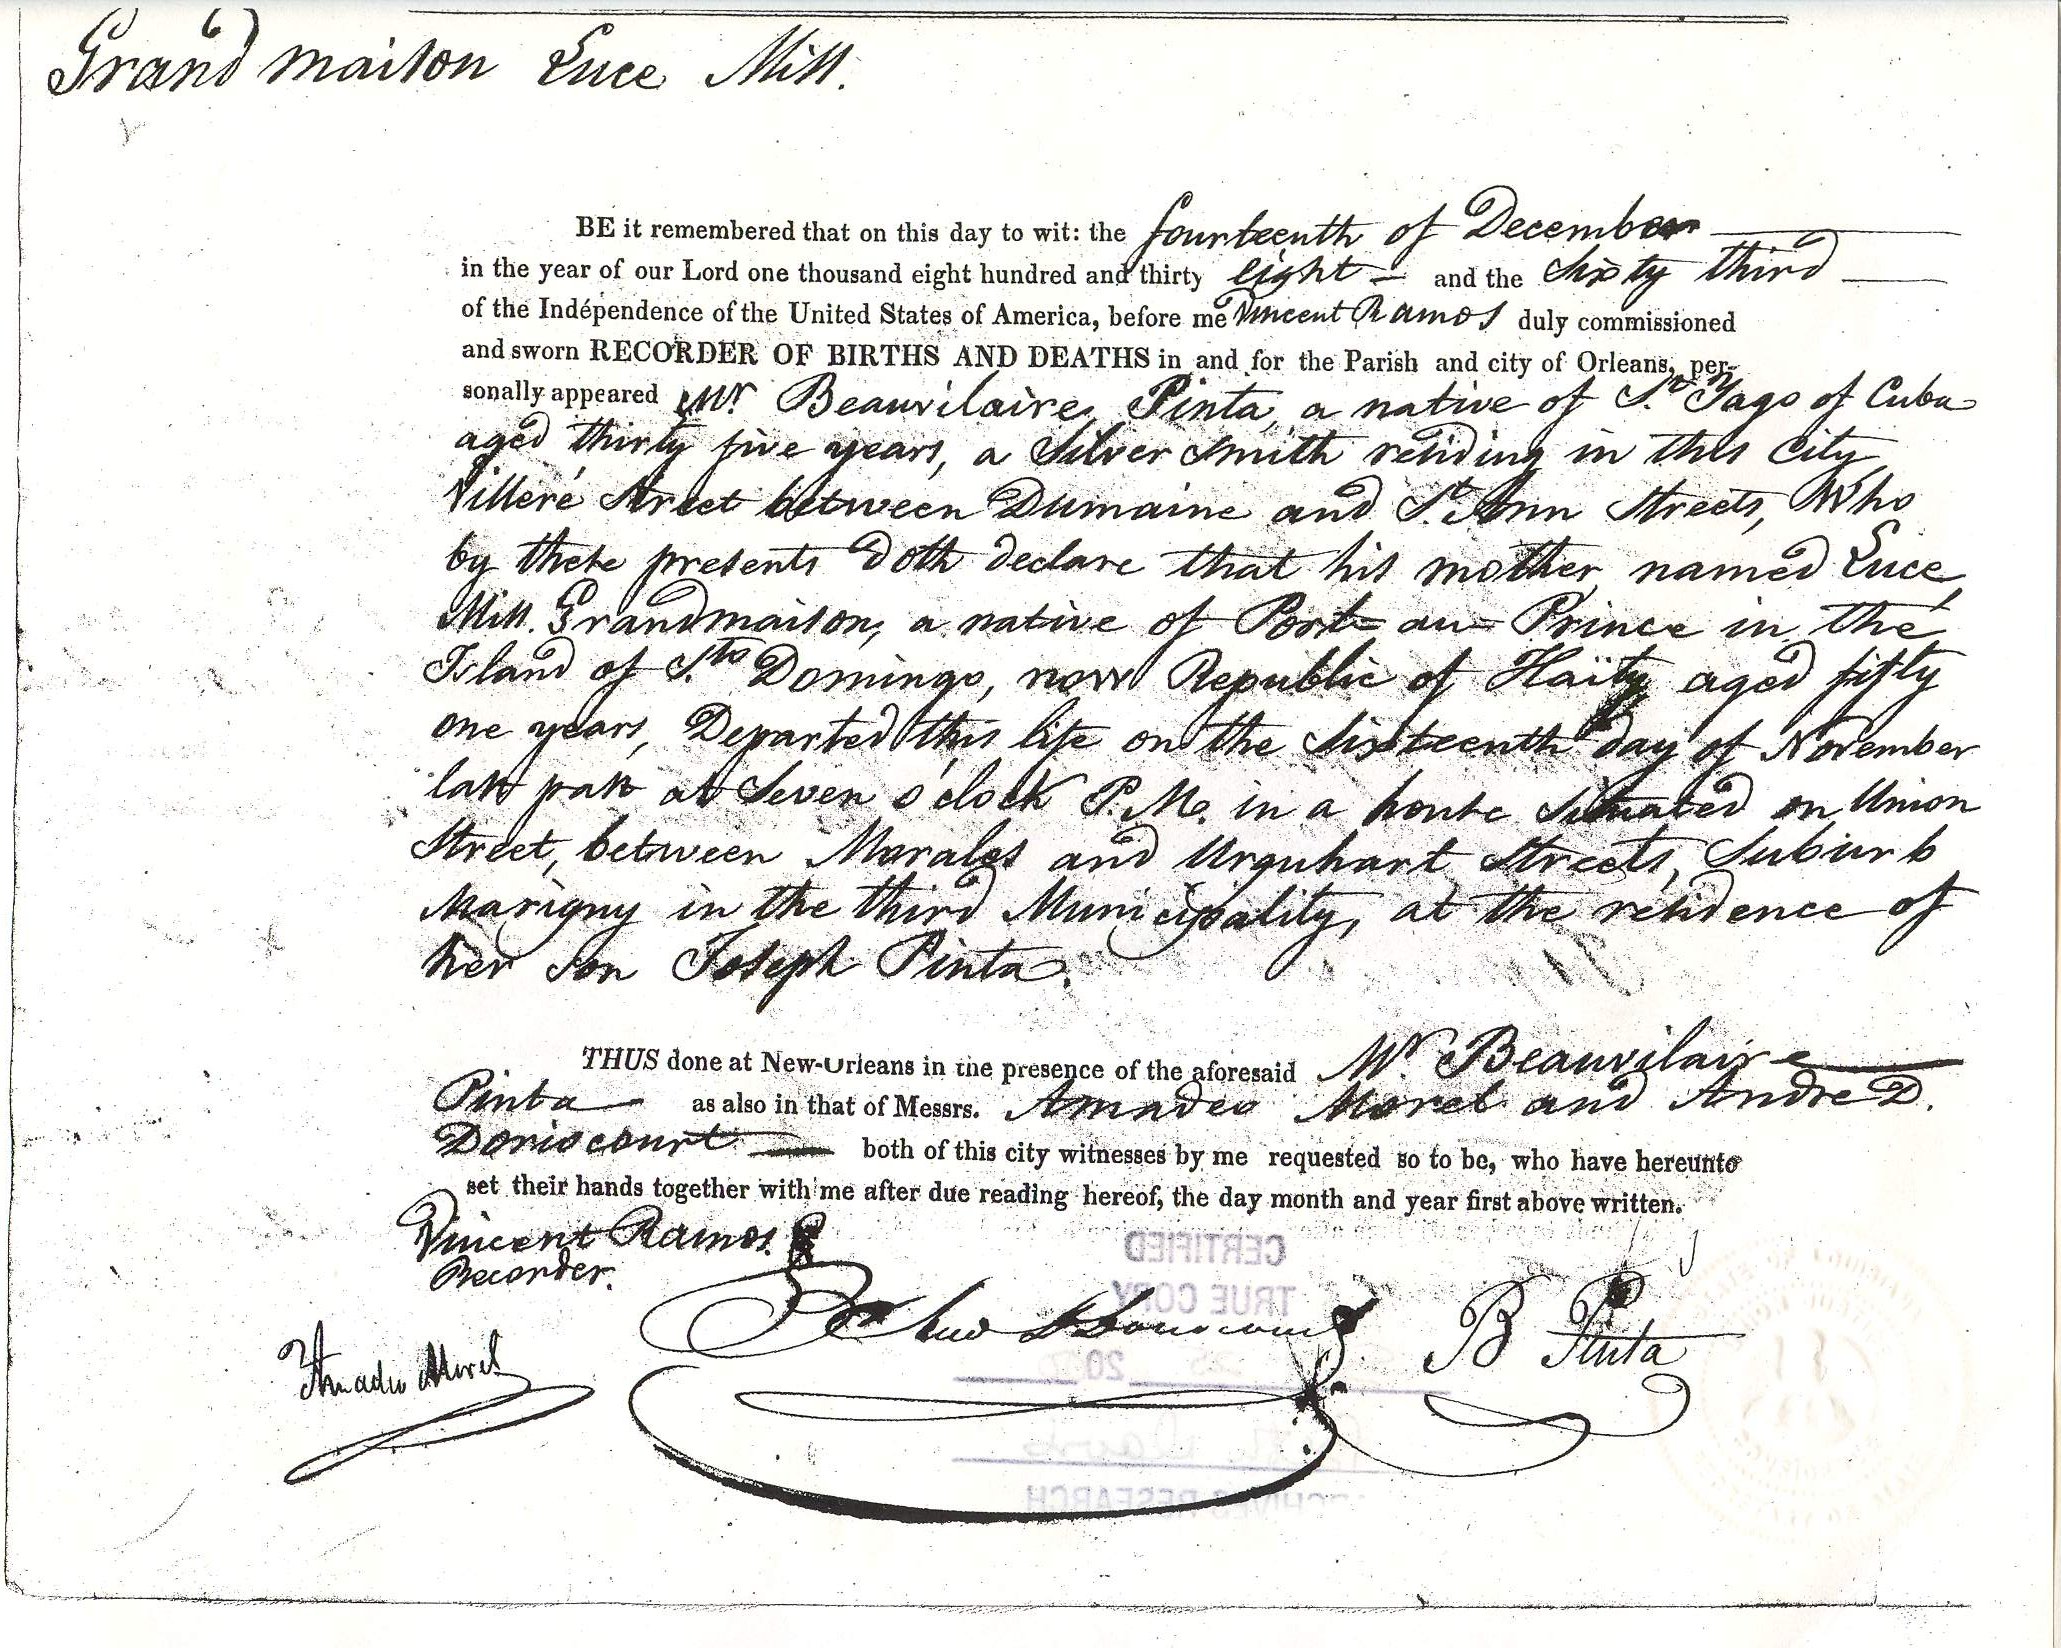 Grandmaison Luce Miss.
BE it remembered that on this day to wit: the fourteenth of December
in the year of our Lord one thousand eight hundred and thirty eight and the Sixty third
of the Indépendence of the United States of America, before me Vincent Ramos duly commissioned
and sworn RECORDER OF BIRTHS AND DEATHS in and for the Parish and city of Orleans, per-
sonally appeared Mr. Beauvilaire Pinta, a native of St. Yago of Cuba
aged thirty five years, a Silver Smith residing in this City
Villeré Street between Dumaine and St. Ann Streets, Who
by these presents doth declare that his mother named Luce,
Miss. Grandmaison, a native of Port-au-Prince in the
Island of Sto. Domingo, now Republic of Haïty aged fifty
one years, Departed this life on the Sixteenth day of November
last past at Seven o'clock P.M. in a house Situated on Union
Street, between Morales and Urquhart Streets, Suburb
Marigny in the third Municipality, at the residence of
her son Joseph Pinta.
THUS done at New-Orleans in the presence of the aforesaid Mr. Beauvilaire
Pinta as also in that of Messrs. Amadeo Morel and Andre D.
Doriocourt both of this city witnesses by me requested so to be, who have hereunto
set their hands together with me after due reading hereof, the day month and year first above written.
Vincent Ramos.
Recorder.
CERTIFIED
TRUE COPY
Amadeo Morel
B Pinta
20
ARCHIVES RESEARCH